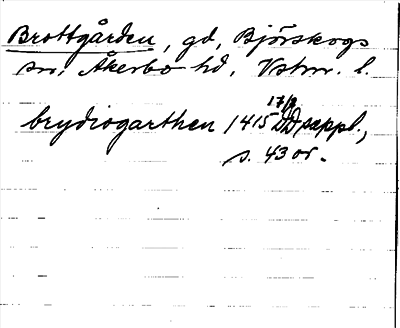 Brottgården, gd, Björskogs
sn, Åkerbo hd, Vstm. l.
17/3
brydiogarthen 1415 DD suppl.,
s. 43 or.